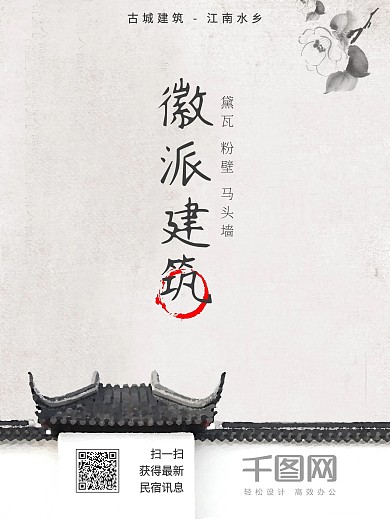 古城建筑 - 江南水乡
徽派建筑
黛瓦 粉壁 马头墙
扫一扫
获得最新
民宿讯息
千图网
轻松设计 高效办公